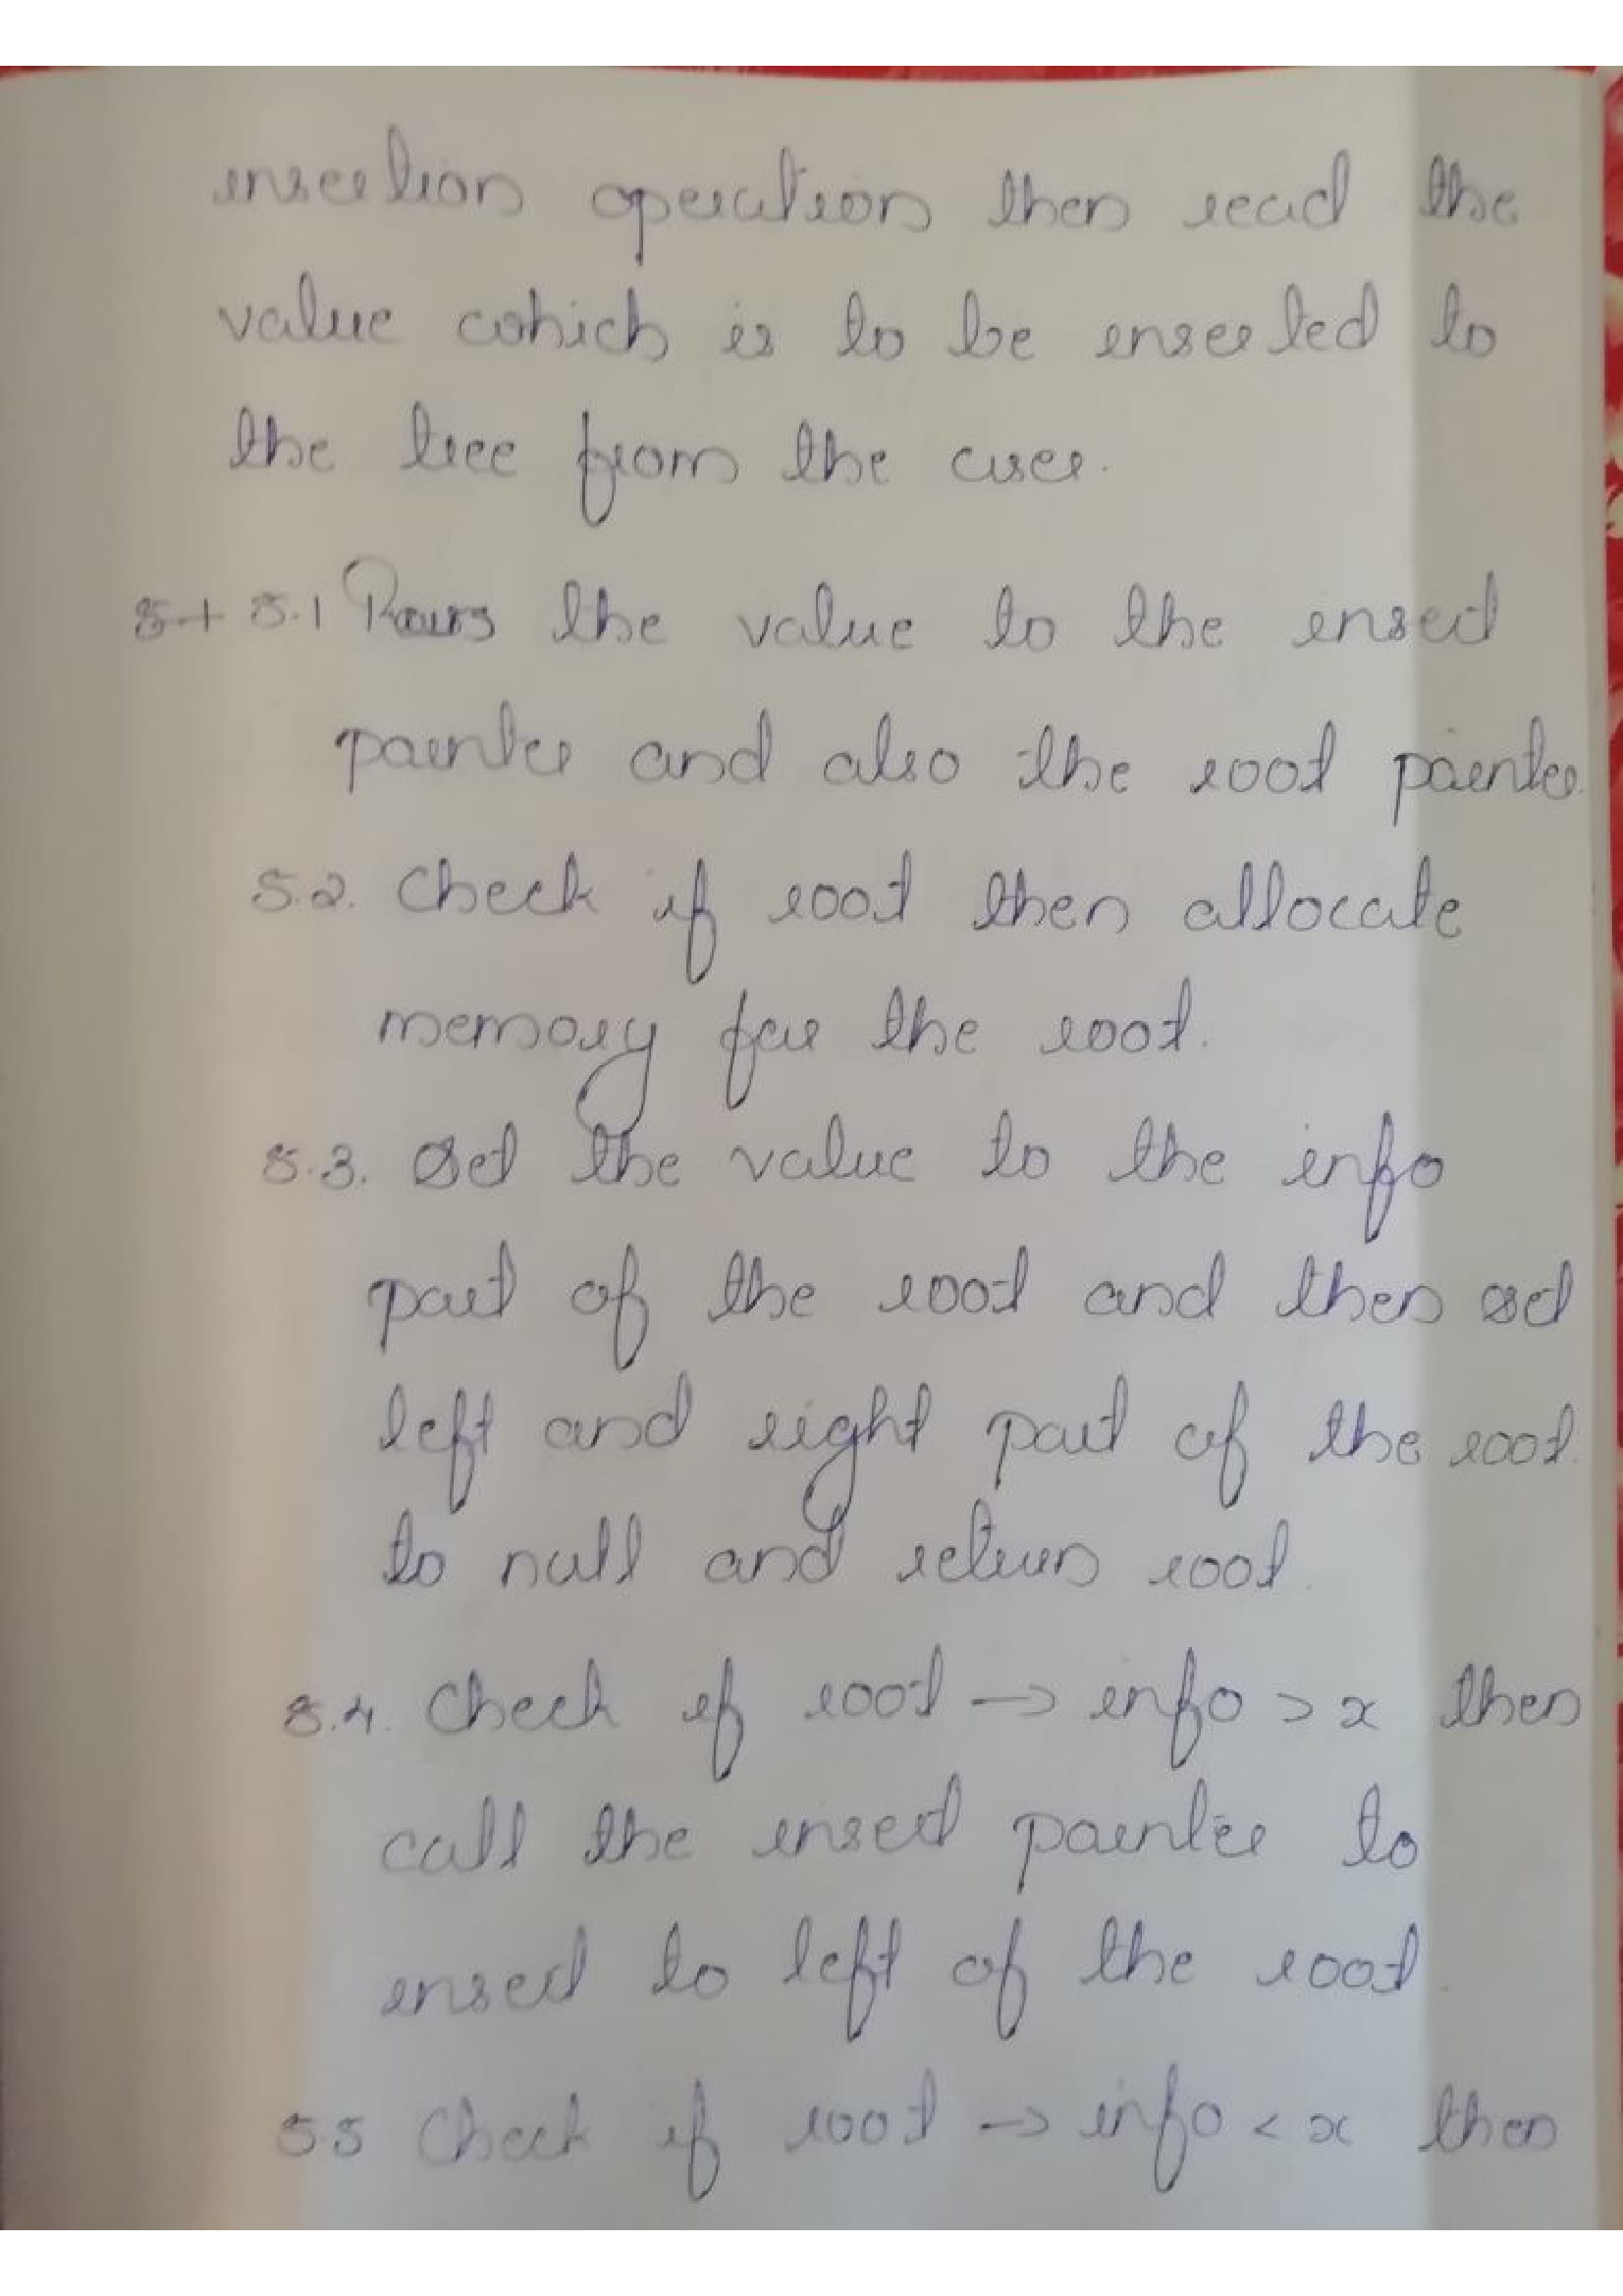 insertion operation then read the
value which is to be inserted to
the tree from the user.
5.1 Pass the value to the insert
pointer and also the root pointer.
5.2. Check if root then allocate
memory for the root.
5.3. Set the value to the info
part of the root and then set
left and right part of the root.
to null and return root.
5.4. Check if root → info > x then
call the insert pointer to
insert to left of the root.
5.5 Check if root → info < x then